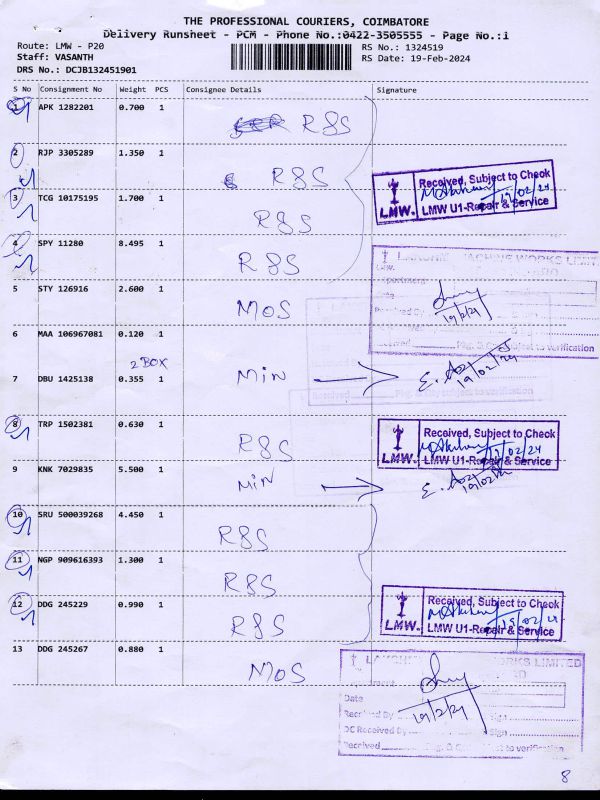 THE PROFESSIONAL COURIERS, COIMBATORE
Delivery Runsheet - PCM - Phone No.:0422-3505555 - Page No.:1
Route: LMW - P20
RS No.: 1324519
Staff: VASANTH
RS Date: 19-Feb-2024
DRS No.: DCJB132451901
S No Consignment No Weight PCS Consignee Details Signature
1 APK 1282201 0.700 1 R&S
2 RJP 3305289 1.350 1 R&S
Received, Subject to Check
19/02/24
LMW. LMW U1-Repair & Service
3 TCG 10175195 1.700 1 R&S
4 SPY 11280 8.495 1 R&S
5 STY 126916 2.600 1 MOS
19/2/24
6 MAA 106967081 0.120 1
2 BOX
7 DBU 1425138 0.355 1 MIN
19/02/24
8 TRP 1502381 0.630 1 R&S
Received, Subject to Check
19/02/24
LMW. LMW U1-Repair & Service
9 KNK 7029835 5.500 1 MIN
19/02/24
10 SRU 500039268 4.450 1 R&S
11 NGP 909616393 1.300 1 R&S
12 DDG 245229 0.990 1 R&S
Received, Subject to Check
19/02/24
LMW. LMW U1-Repair & Service
13 DDG 245267 0.880 1 MOS
WORKS LIMITED
Date
19/2/24
Received By
Sign
DC Received By
Sign
Received
to verification
8